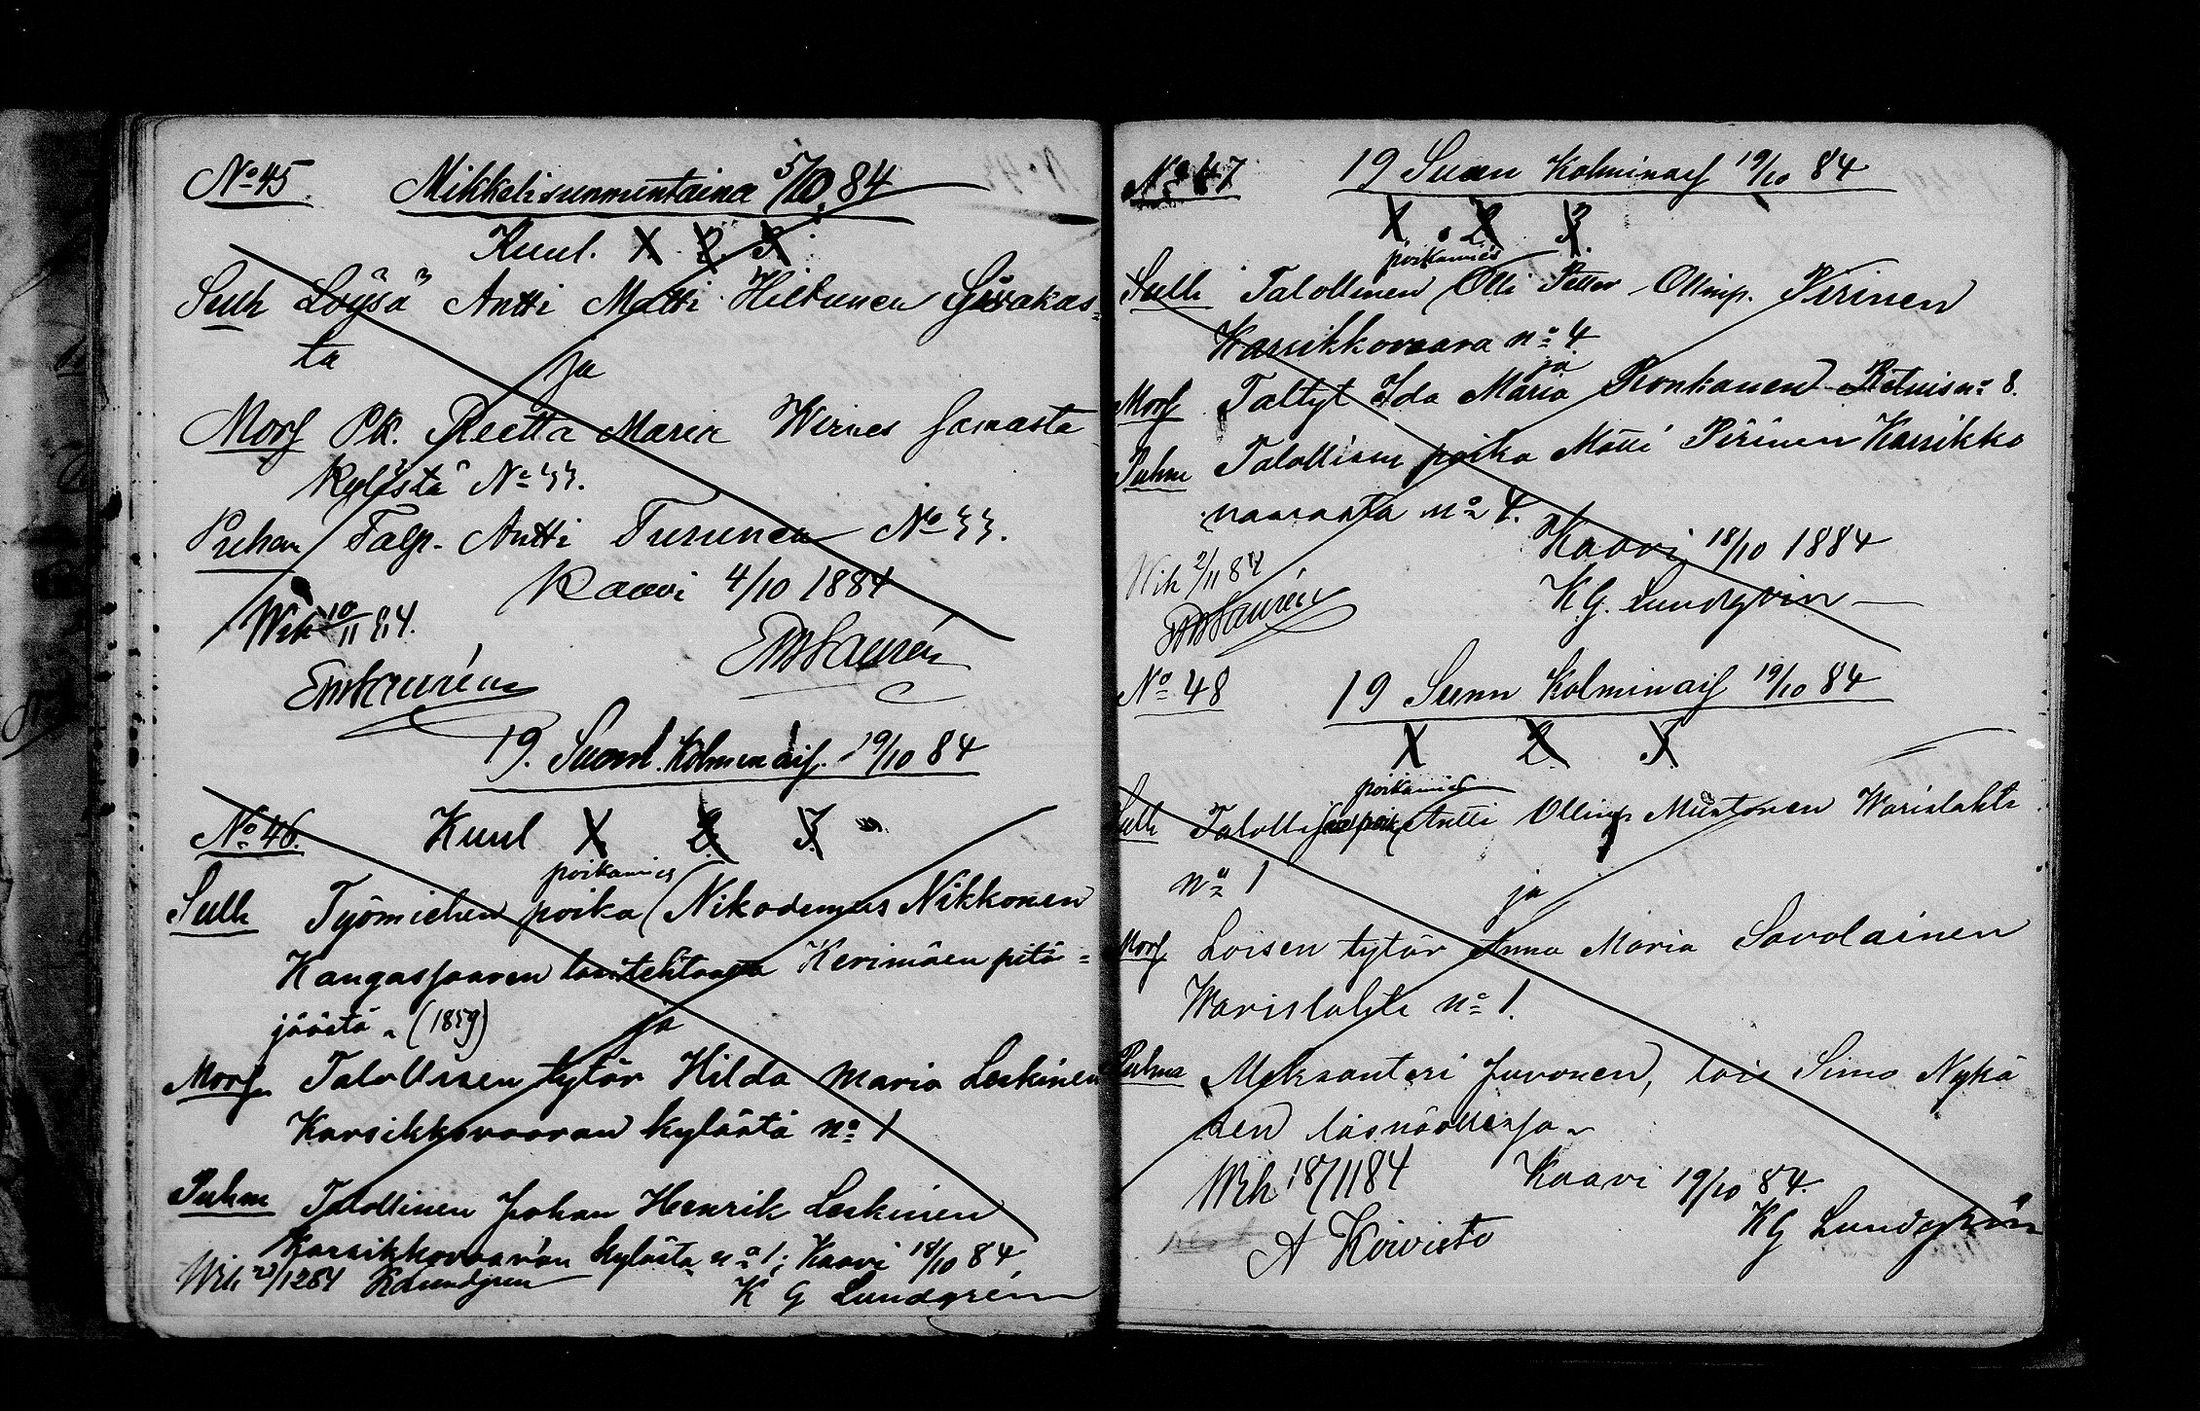 No 45 Mikkelisunnuntaina 5/10 84
Kuul. X 2 3
Sulh Löysä Antti Matti Hiltunen
ta ja
Morf Pk. Reetta Maria Wirnes samasta
kylästä No 44.
Puhem Talp. Antti Turunen No 44.
Kaavi 4/10 1884
Wih 10/11 84.
19. Sunn. Kolminais. 19/10 84
No 46. Kuul X 2. 3.
poikamies
Sulh Työmiehen poika (Nikodemus Nikkonen
Kangassaaren Kerimäen pitä=
jäästä. (1859) ja
Morf Talollisen tytär Hilda Maria Leskinen
Karsikkovaaran kylästä no 1
Puhm Talollinen Johan Henrik Leskinen
Karsikkovaaran kylästä no 1; Kaavi 18/10 84
Wih 21/12 84 KLundgren K G Lundgrén
No 47 19 Suun Kolminais 19/10 84
X 2 3.
poikamies
Sulh Talollinen (Olli Petter Ollinp. Pirinen
Karsikkovaara no 4.
ja
Morf Taltyt Ida Maria Ronkanen no 8.
Puhm Talollisen poika Matti Pirinen Karsikko
vaarasta no 4.
Kaavi 18/10 1884
Wih 2/11 84
K.G. Lundgrén
No 48 19 Sunn Kolminais 19/10 84
X 2. 3.
poikamies
Sulh (Antti Ollinp Mustonen Warislahti
no 1 ja
Morf Loisen tytär Anna Maria Savolainen
Warislahti no 1.
Puhm Aleksanteri Juvonen, lois Simo Nykä
sen läsnäollessa.
Wih 18/11 84 Kaavi 19/10 84.
A Koivisto KG Lundgrén